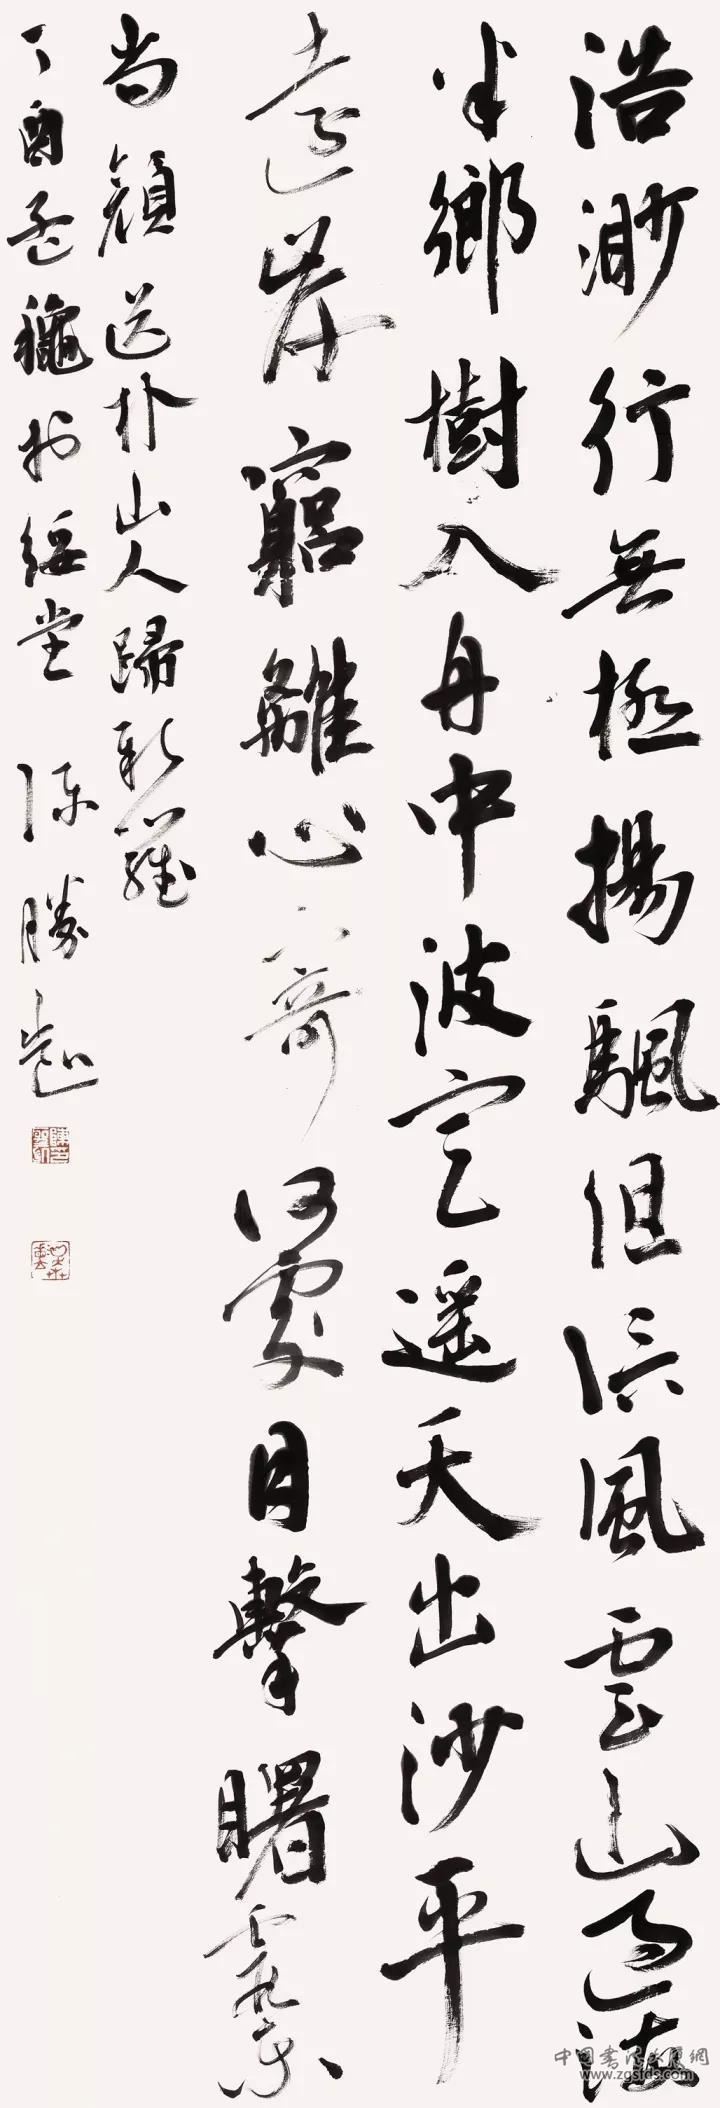 浩渺行無極揚颿但信風雲山過海
半鄉樹入舟中波定遙天出沙平
遠岸窮離心寄何處目擊曙霞東
尚顏送朴山人歸新羅
丁酉孟龝於綏堂 陳勝凱
www.zgsfds.com